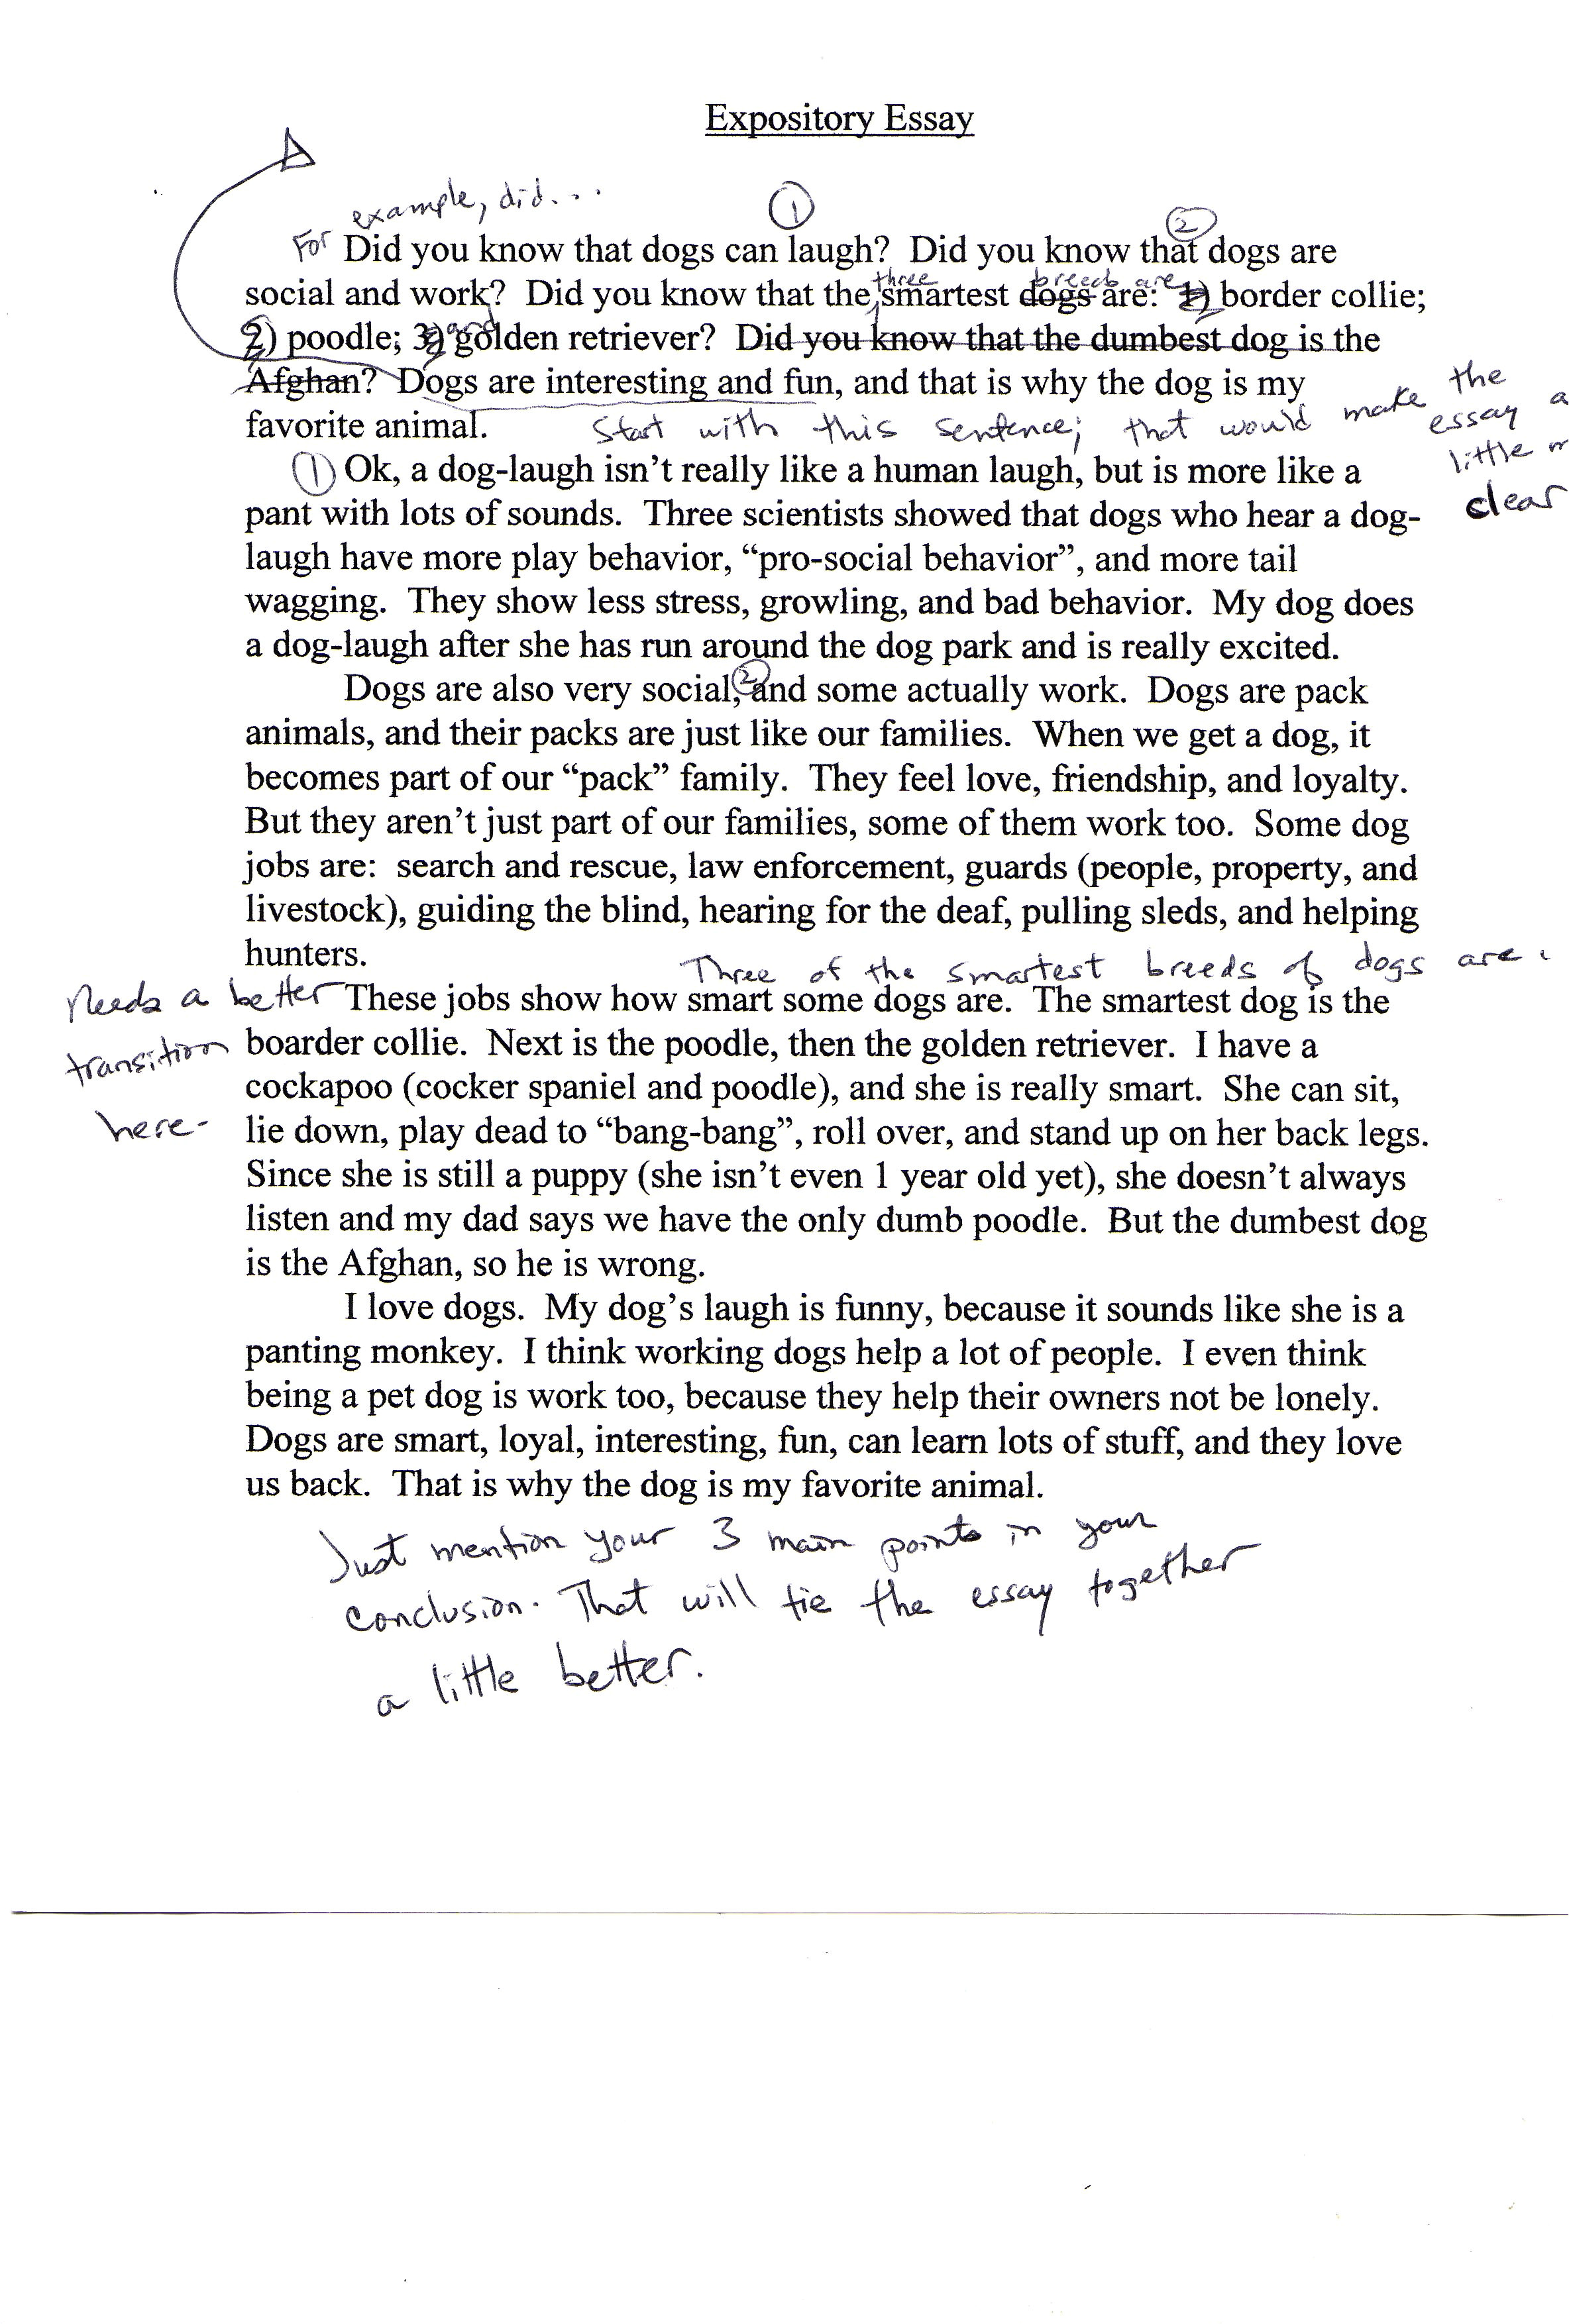 Expository Essay
example, did...
①
②
For Did you know that dogs can laugh? Did you know that dogs are
three breeds are
social and work? Did you know that the smartest dogs are: 1) border collie;
and
2) poodle; 3) golden retriever? Did you know that the dumbest dog is the
Afghan? Dogs are interesting and fun, and that is why the dog is my
favorite animal. Start with this sentence; that would make the
essay a
little
clear
① Ok, a dog-laugh isn't really like a human laugh, but is more like a
pant with lots of sounds. Three scientists showed that dogs who hear a dog-
laugh have more play behavior, “pro-social behavior”, and more tail
wagging. They show less stress, growling, and bad behavior. My dog does
a dog-laugh after she has run around the dog park and is really excited.
②
Dogs are also very social, and some actually work. Dogs are pack
animals, and their packs are just like our families. When we get a dog, it
becomes part of our “pack” family. They feel love, friendship, and loyalty.
But they aren't just part of our families, some of them work too. Some dog
jobs are: search and rescue, law enforcement, guards (people, property, and
livestock), guiding the blind, hearing for the deaf, pulling sleds, and helping
hunters.
Three of the smartest breeds of dogs are
Needs a better
transition
here-
These jobs show how smart some dogs are. The smartest dog is the
boarder collie. Next is the poodle, then the golden retriever. I have a
cockapoo (cocker spaniel and poodle), and she is really smart. She can sit,
lie down, play dead to “bang-bang”, roll over, and stand up on her back legs.
Since she is still a puppy (she isn't even 1 year old yet), she doesn't always
listen and my dad says we have the only dumb poodle. But the dumbest dog
is the Afghan, so he is wrong.
I love dogs. My dog's laugh is funny, because it sounds like she is a
panting monkey. I think working dogs help a lot of people. I even think
being a pet dog is work too, because they help their owners not be lonely.
Dogs are smart, loyal, interesting, fun, can learn lots of stuff, and they love
us back. That is why the dog is my favorite animal.
Just mention your 3 main points in your
conclusion. That will tie the essay together
a little better.